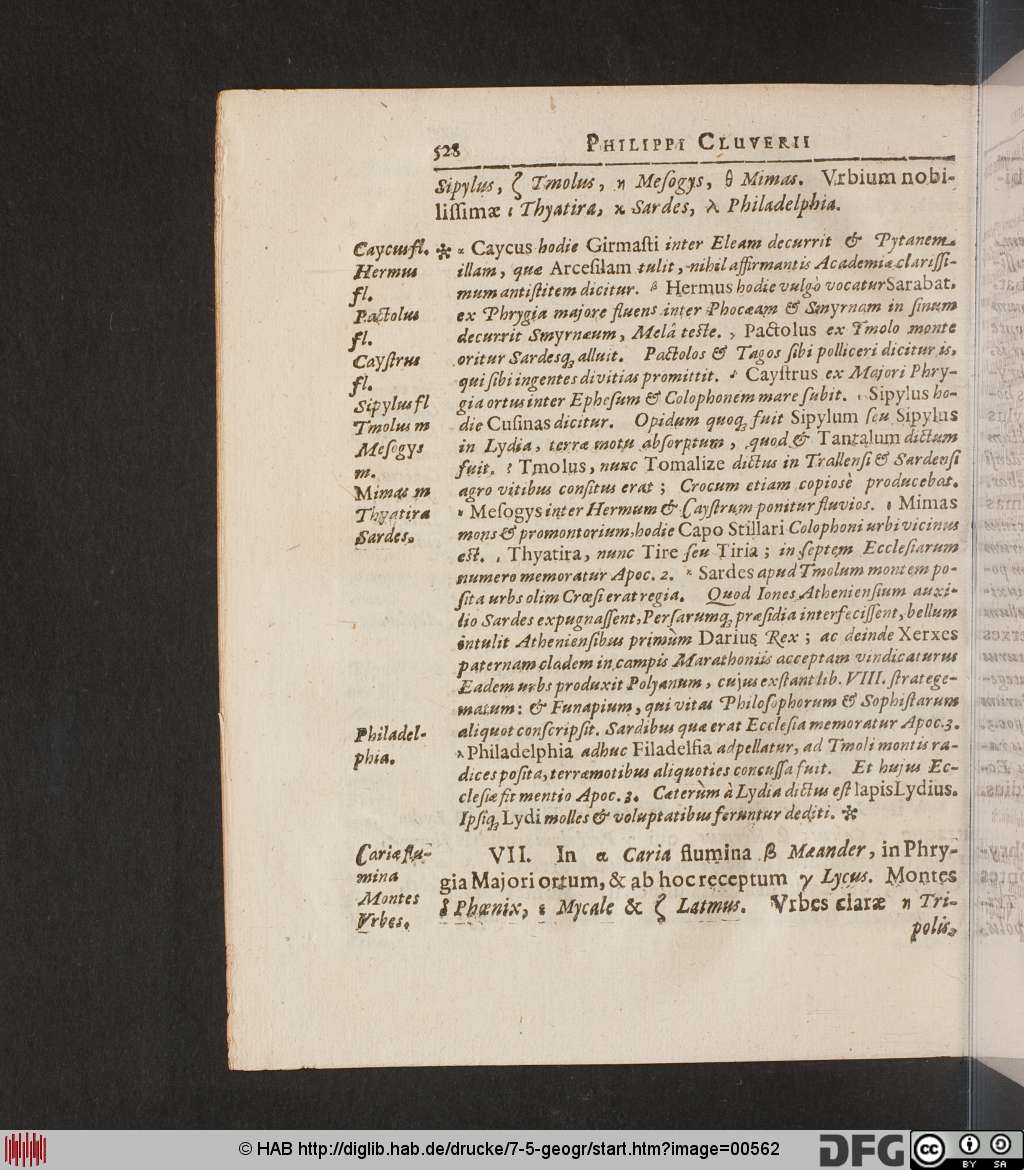 528 PHILIPPI CLUVERII
Sipylus, ζ Tmolus, η Meſogys, θ Mimas. Vrbium nobi-
liſſimæ ι Thyatira, ϰ Sardes, λ Philadelphia.
Caycus fl.
Hermus
fl.
Pactolus
fl.
Cayſtrus
fl.
Sipylus fl
Tmolus m
Meſogys
m.
Mimas m
Thyatira
Sardes.
✻ α Caycus hodie Girmaſti inter Eleam decurrit & Pytanem
illam, quæ Arceſilam tulit, nihil affirmantis Academiæ clariſſi-
mum antiſtitem dicitur. β Hermus hodie vulgò vocatur Sarabat.
ex Phrygia majore fluens inter Phocæam & Smyrnam in ſinum
decurrit Smyrnæum, Melâ teſte. γ Pactolus ex Tmolo monte
oritur Sardesq; alluit. Pactolos & Tagos ſibi polliceri dicitur is,
qui ſibi ingentes divitias promittit. δ Cayſtrus ex Majori Phry-
gia ortus inter Epheſum & Colophonem mare ſubit. ε Sipylus ho-
die Cuſinas dicitur. Opidum quoq; fuit Sipylum ſeu Sipylus
in Lydia, terræ motu abſorptum, quod & Tantalum dictum
fuit. ζ Tmolus, nunc Tomalize dictus in Trallenſi & Sardenſi
agro vitibus conſitus erat; Crocum etiam copiosè producebat.
η Meſogys inter Hermum & Cayſtrum ponitur fluvios. θ Mimas
mons & promontorium, hodie Capo Stillari Colophoni urbi vicinus
eſt. ι Thyatira, nunc Tire ſeu Tiria; in ſeptem Eccleſiarum
numero memoratur Apoc. 2. ϰ Sardes apud Tmolum montem po-
ſita urbs olim Crœſi erat regia. Quod Iones Athenienſium auxi-
lio Sardes expugnaſſent, Perſarumq; præſidia interfeciſſent, bellum
intulit Athenienſibus primùm Darius Rex; ac deinde Xerxes
paternam cladem in campis Marathoniis acceptam vindicaturus
Eadem urbs produxit Polyanum, cujus exſtant lib. VIII. ſtratege-
matum: & Funapium, qui vitas Philoſophorum & Sophiſtarum
aliquot conſcripſit. Sardibus quæ erat Eccleſia memoratur Apoc. 3.
Philadel-
phia.
λ Philadelphia adhuc Filadelfia adpellatur, ad Tmoli montis ra-
dices poſita, terræmotibus aliquoties concuſſa fuit. Et hujus Ec-
cleſiæ fit mentio Apoc. 3. Cæterùm à Lydia dictus eſt lapis Lydius.
Ipſiq; Lydi molles & voluptatibus feruntur dediti. ✻
Cariæ flu-
mina
Montes
Vrbes.
VII. In α Caria flumina β Mæander, in Phry-
gia Majori ortum, & ab hoc receptum γ Lycus. Montes
δ Phœnix, ε Mycale & ζ Latmus. Vrbes claræ η Tri-
polis,
© HAB http://diglib.hab.de/drucke/7-5-geogr/start.htm?image=00562
DFG
cc BY SA